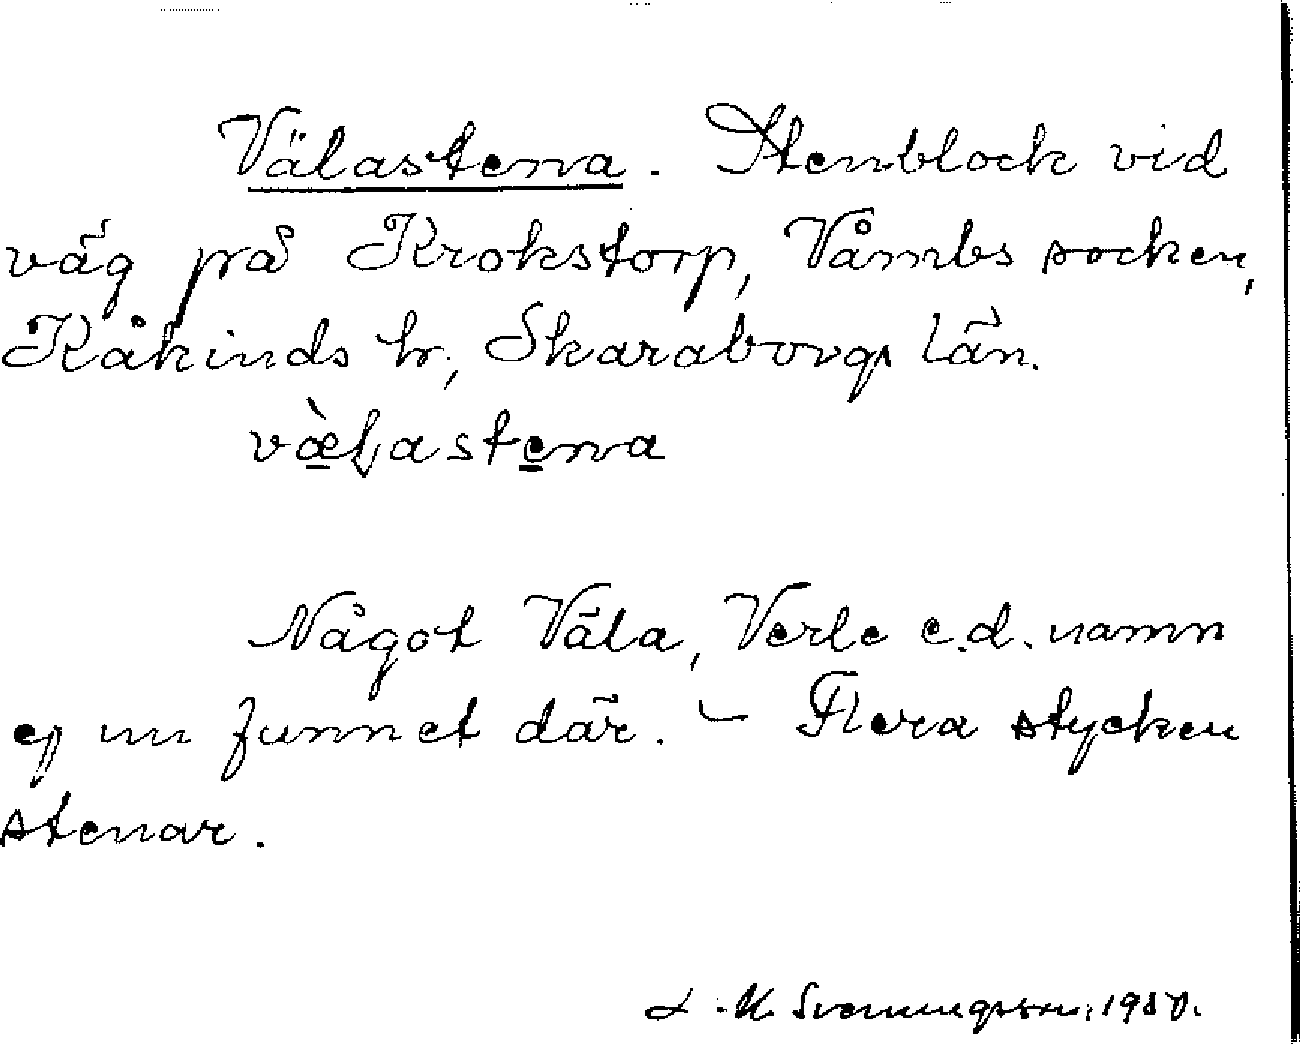 Välastena. Stenblock vid
väg på Krokstorp, Våmbs socken,
Kåkinds hr, Skaraborgs län.
væ̀ɽastena
Något Väla, Verle e.d. namn
ej nu funnet där. – Flera stycken
stenar.
Svenningsson, 1950.